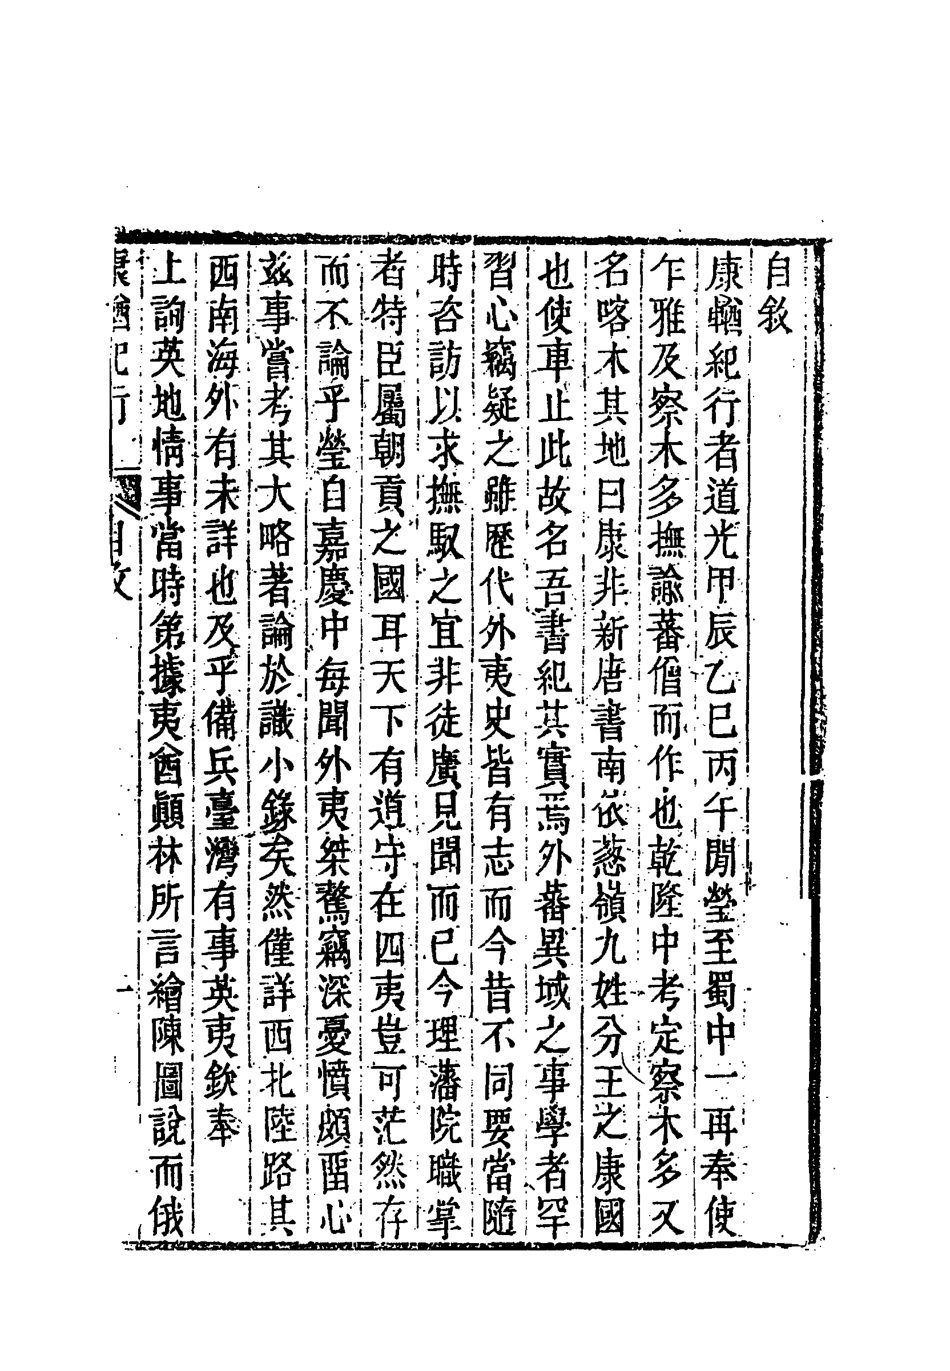 自敘
康輶紀行者道光甲辰乙巳丙午閒瑩至蜀中一再奉使
乍雅及察木多撫諭蕃僧而作也乾隆中考定察木多又
名喀木其地曰康非新唐書南依蔥嶺九姓分王之康國
也使車止此故名吾書紀其實焉外蕃異域之事學者罕
習心竊疑之雖歷代外夷史皆有志而今昔不同要當隨
時咨訪以求撫馭之宜非徒廣見聞而已今理藩院職掌
者特臣屬朝貢之國耳天下有道守在四夷豈可茫然存
而不論乎瑩自嘉慶中每聞外夷桀驁竊深憂憤頗畱心
茲事嘗考其大略著論於識小錄矣然僅詳西北陸路其
西南海外有未詳也及乎備兵臺灣有事英夷欽奉
上詢英地情事當時第據夷酋顛林所言繪陳圖說而俄
康輶紀行 自敘 一